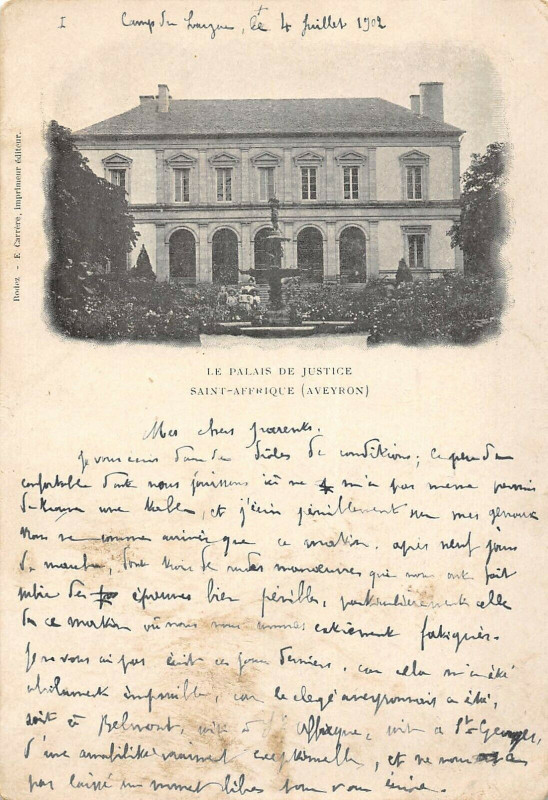 I Camp du Larzac, le 4 Juillet 1902
Rodez - E. Carrère, imprimeur éditeur.
LE PALAIS DE JUSTICE
SAINT-AFFRIQUE (AVEYRON)
Mes chers parents.
Je vous écris dans de drôles de conditions; le peu de
confortable dont nous jouissons ici ne m'a pas même permis
de trouver une table, et j'écris péniblement sur mes genoux
Nous ne sommes arrivés que ce matin, après neuf jours
de marche, dont trois de rudes manœuvres qui nous ont fait
subir des épreuves bien pénibles, particulièrement celle
de ce matin où nous nous sommes extrêmement fatigués.
Je ne vous ai pas écrit ces jours derniers, car cela m'a été
absolument impossible, car le clergé aveyronnais a été,
soit à Belmont, soit à St Affrique, soit à St-Georges,
d'une amabilité vraiment exceptionnelle, et ne nous a
pas laissé un moment libre pour vous écrire.